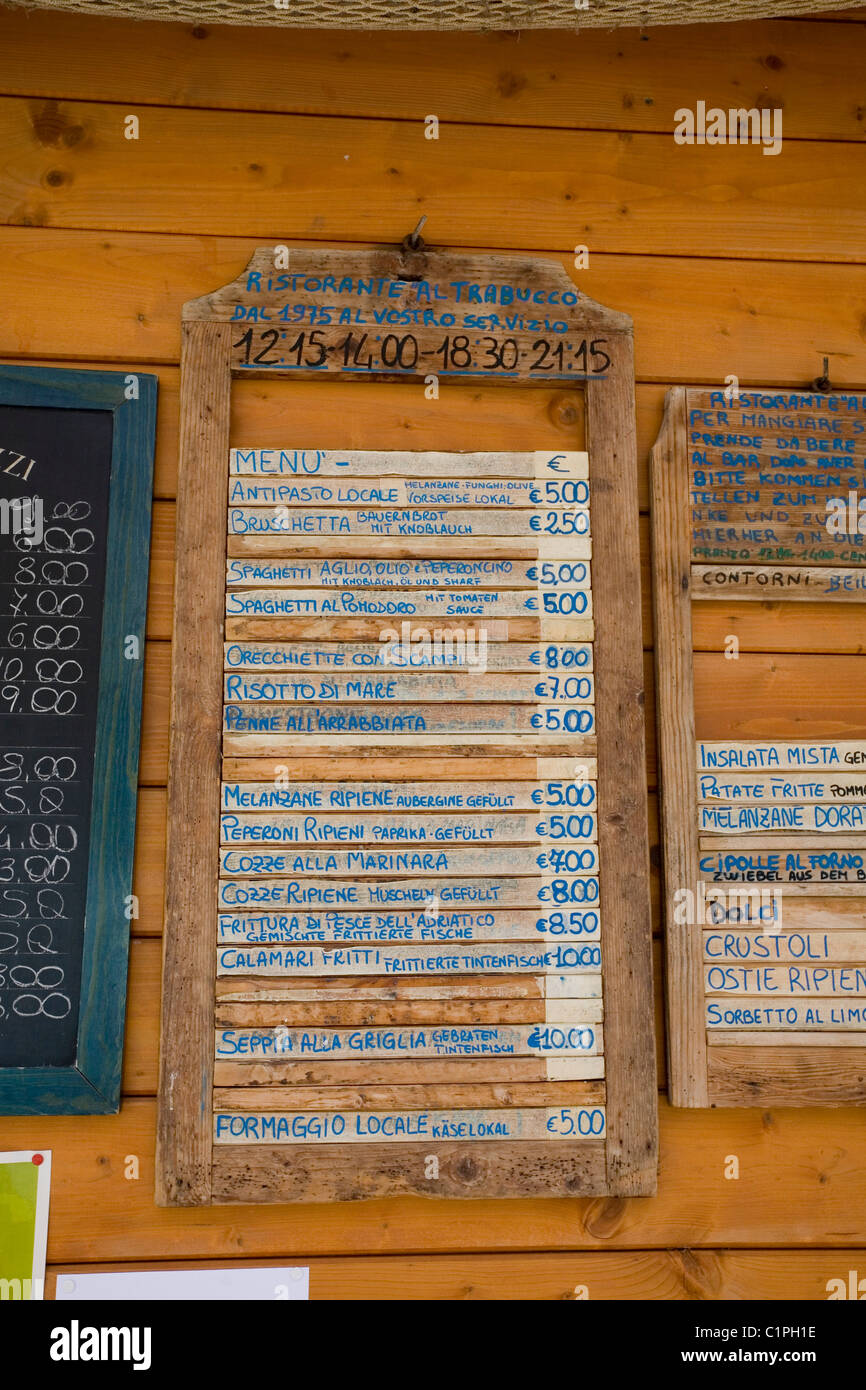 RISTORANTE "AL TRABUCCO
DAL 1975 AL VOSTRO SERVIZIO
12:15-14:00-18:30-21:15
MENU' - €
ANTIPASTO LOCALE MELANZANE-FUNGHI-OLIVE VORSPEISE LOKAL €5.00
BRUSCHETTA BAUERNBROT MIT KNOBLAUCH €2.50
SPAGHETTI AGLIO, OLIO e PEPERONCINO €5,00
MIT KNOBLACH, ÖL UND SHARF
SPAGHETTI AL POMODORO MIT TOMATEN SAUCE €5.00
ORECCHIETTE CON SCAMPI €8.00
RISOTTO DI MARE €7.00
PENNE ALL'ARRABBIATA €5.00
MELANZANE RIPIENE AUBERGINE GEFÜLLT €5.00
PEPERONI RIPIENI PAPRIKA-GEFÜLLT €5.00
COZZE ALLA MARINARA €7.00
COZZE RIPIENE MUSCHELN GEFÜLLT €8.00
FRITTURA DI PESCE DELL'ADRIATICO €8.50
GEMISCHTE FRITTIERTE FISCHE
CALAMARI FRITTI FRITTIERTE TINTENFISCHE €10.00
SEPPIA ALLA GRIGLIA GEBRATEN TINTENFISCH €10.00
FORMAGGIO LOCALE KÄSE LOKAL €5.00
ZZI
8,00
8,00
7,00
6,00
10,00
9,00
8,00
4,00
3,00
8,00
RISTORANTE "A
PER MANGIARE S
PRENDE DA BERE
AL BAR, DOPO AVER
BITTE KOMMEN S
TELLEN ZUM
NKE UND ZU
HIERHER AN DIE
CONTORNI - BEIL
INSALATA MISTA GEM
PATATE FRITTE POMM
MELANZANE DORAT
CIPOLLE AL FORNO
ZWIEBEL AUS DEM B
DOLCI
CRUSTOLI
OSTIE RIPIEN
SORBETTO AL LIMO
alamy
Image ID: C1PH1E
www.alamy.com